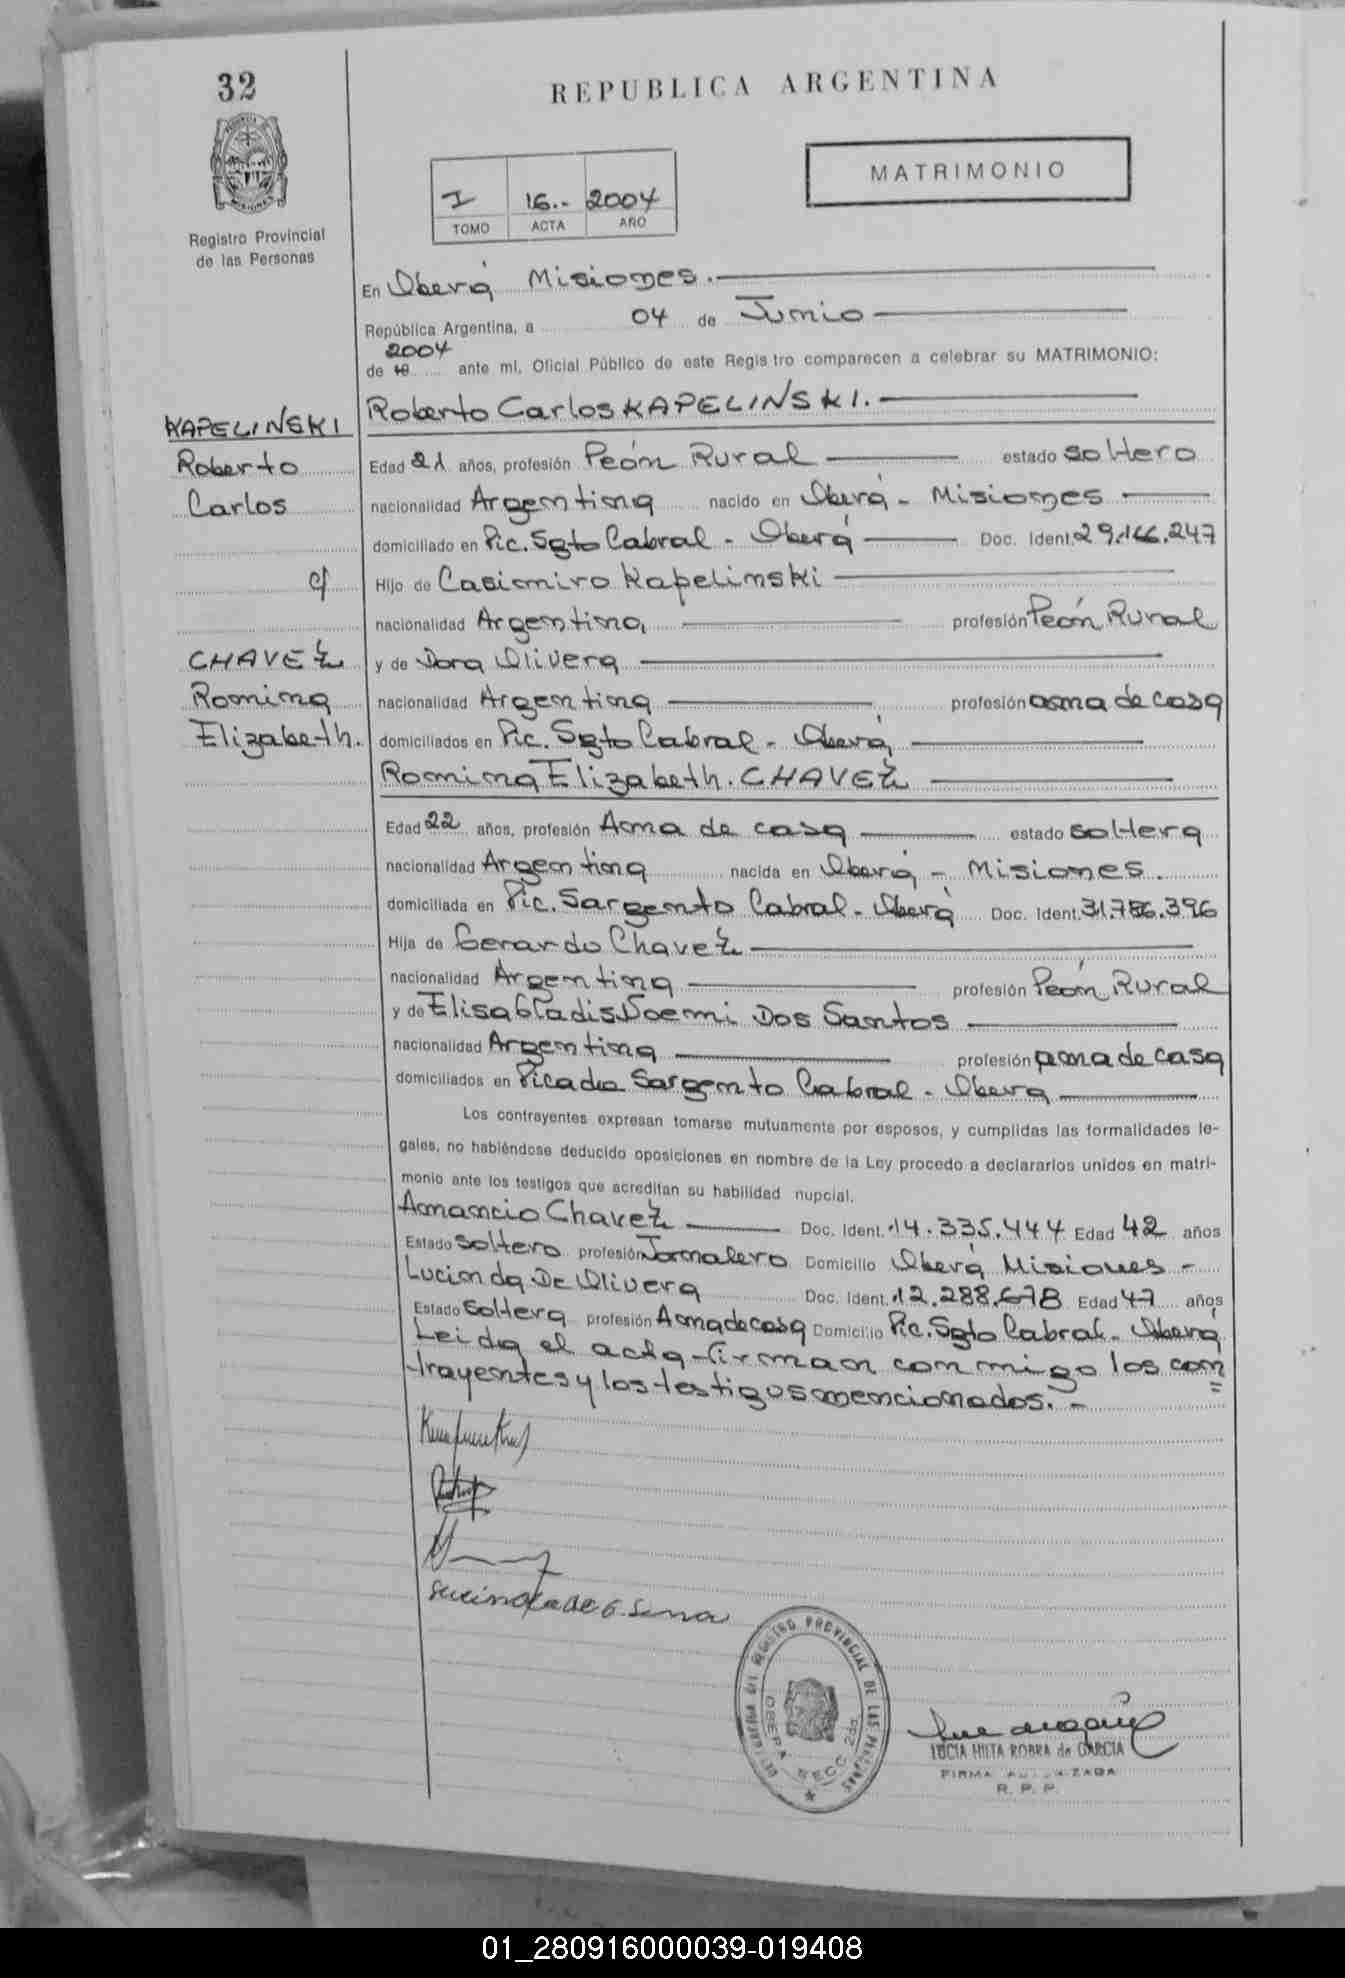 32
REPUBLICA ARGENTINA
MATRIMONIO
I 16.- 2004
TOMO ACTA AÑO
Registro Provincial
de las Personas
En Oberá Misiones.
República Argentina, a 04 de Junio
2004
de 19 ante mí, Oficial Público de este Registro comparecen a celebrar su MATRIMONIO:
Roberto Carlos KAPELINSKI.
KAPELINSKI
Roberto
Carlos
c/
CHAVEZ
Romina
Elizabeth.
Edad 21 años, profesión Peón Rural estado soltero
nacionalidad Argentina nacido en Oberá - Misiones
domiciliado en Pic. Sgto Cabral - Oberá Doc. Ident. 29.166.247
Hijo de Casimiro Kapelinski
nacionalidad Argentina, profesión Peón Rural
y de Dora Olivera
nacionalidad Argentina profesión ama de casa
domiciliados en Pic. Sgto Cabral - Oberá
Romina Elizabeth. CHAVEZ
Edad 22 años, profesión Ama de casa estado soltera
nacionalidad Argentina nacida en Oberá - Misiones.
domiciliada en Pic. Sargento Cabral - Oberá Doc. Ident. 31.786.396
Hija de Gerardo Chavez
nacionalidad Argentina profesión Peón Rural
y de Elisa Gladis Noemi Dos Santos
nacionalidad Argentina profesión ama de casa
domiciliados en Picada Sargento Cabral - Obera
Los contrayentes expresan tomarse mutuamente por esposos, y cumplidas las formalidades le-
gales, no habiéndose deducido oposiciones en nombre de la Ley procedo a declararlos unidos en matri-
monio ante los testigos que acreditan su habilidad nupcial.
Amancio Chavez Doc. Ident. 14.335.444 Edad 42 años
Estado Soltero profesión Jornalero Domicilio Oberá Misiones -
Lucinda De Olivera Doc. Ident. 12.288.678 Edad 47 años
Estado Soltera profesión Ama de casa Domicilio Pic. Sgto Cabral - Oberá
Leida el acta firman conmigo los con=
trayentes y los testigos mencionados. -
DELEGACION DEL REGISTRO PROVINCIAL DE LAS PERSONAS
OBERA SECC 2da.
LUCIA HILTA ROBRA de GARCIA
FIRMA AUTORIZADA
R. P. P.
01_280916000039-019408